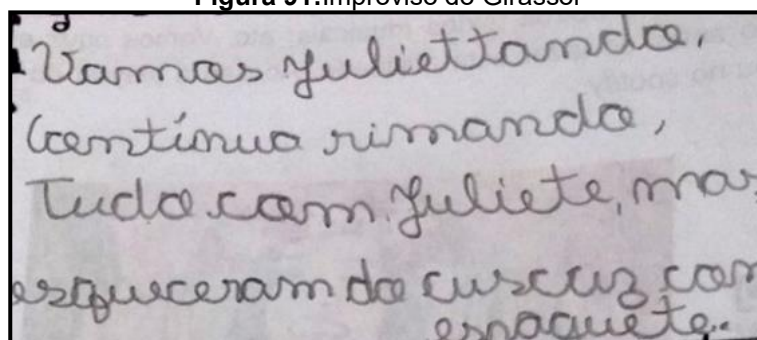 Figura 91:Improviso do Girassol
Vamos Juliettando,
Contínuo rimando,
Tudo com Juliete, mas
esqueceram do cuscuz com
espaguete..